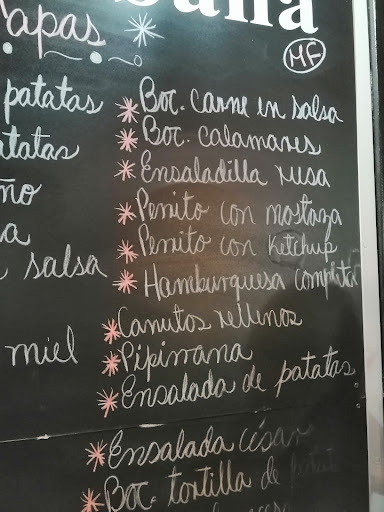 apas
MF
patatas
Boc. carne en salsa
Boc. calamares
Ensaladilla rusa
Perrito con mostaza
salsa
Perrito con Ketchup
Hamburguesa completa
Canutos rellenos
miel
Pipirrana
Ensalada de patatas
Ensalada césar
Boc. tortilla de